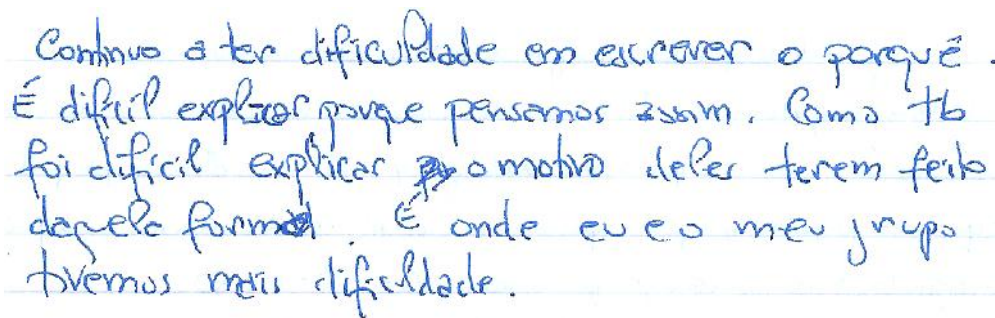 Continuo a ter dificuldade em escrever o porquê.
É difícil explicar porque pensamos assim. Como tb
foi difícil explicar o motivo deles terem feito
daquela forma. É onde eu e o meu grupo
tivemos mais dificuldade.